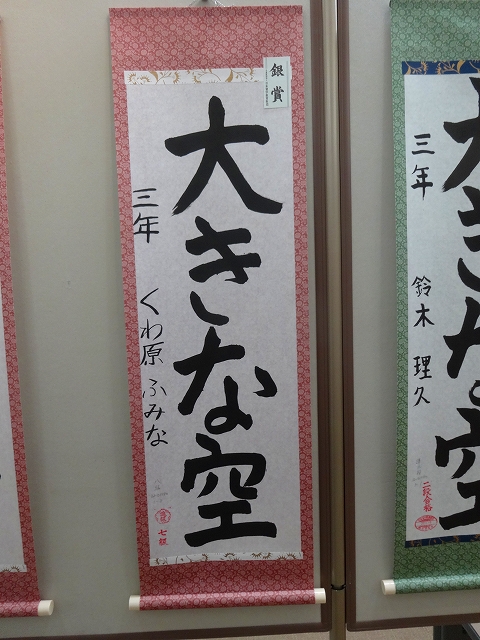 銀賞
大きな空
三年 くわ原 ふみな
七級
三年 鈴木 理久
二段合格